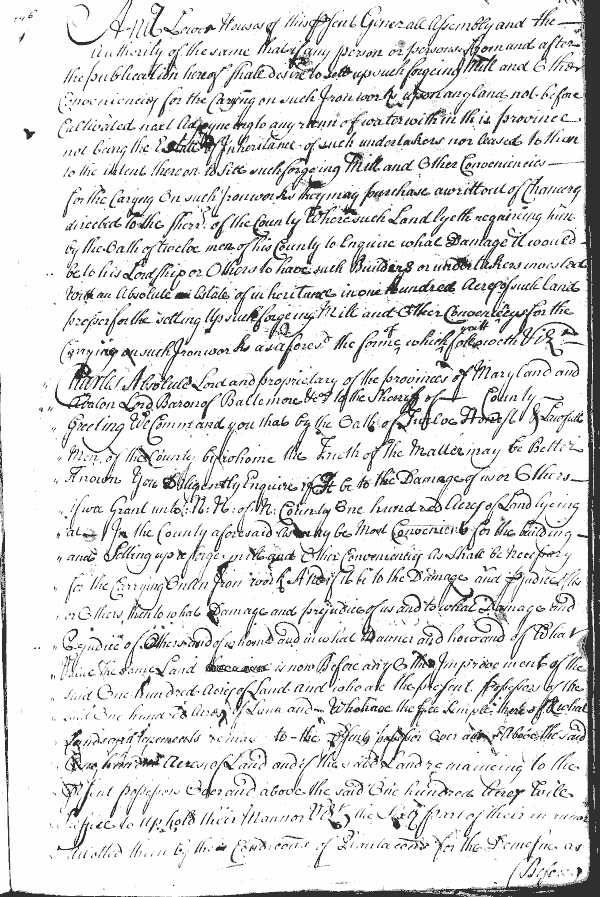 And Lower Houses of this psent Generall Assembly and the
Authority of the same that if any person or persons from and after
the publication hereof shall desire to sett up such forgeing Mill and Other
Conveniencies for the Carying on such Iron works upon any land not before
Cultivated next Adjoyneing to any runn of water within this province
not being the Estate Inheritance of such undertakers nor leased to them
to the intent thereon to sett such forgeing Mill and Other Conveniencies
for the Carying On such Iron works they may purchase a writt out of Chancery
directed to the sherr. of the County Where such Land lyeth requireing him
by the Oath of twelve men of his County to Enquire what Damage it would
be to his Lordship or Others to have such Builders or undertakers invested
with an Absolute Estate of inheritance in one hundred Acres of such land
proper for the setting Up such forgeing Mill and Other Conveniencys for the
Carrying on such Iron works as afores.d the forme of which writt followeth Vizt
Charles Absolute Lord and proprietary of the provinces of Maryland and
Avalon Lord Baron of Baltemore &c to the Sherriff of County
Greeting We Command you that by the Oath of Twelve Honest & Lawfull
Men of the County by whome the Truth of the Matter may be Better
Known You Diligently Enquire if It be to the Damage of us or Others
if wee Grant unto N: N: of N: County One hundred Acres of Land lyeing
at In the County aforesaid as may be Most Convenient for the building
and Setting up a forge mill and Other Conveniencies as Shall be Necessary
for the Carrying On an Iron work And if to be to the Damage and prejudice of us
or Others then to what Damage and prejudice of us and to what Damage and
Prejudice of Others and of whome and in what Manner and how and of What
Value the same Land is now Before any Other Improvement of the
said One hundred Acres of Land and who are the present Possessors of the
said One hundred Acres of Land and Who have the fee Simple thereof & what
Land and Tenements remaine to the Psent possessor Over and Above the said
One hundred Acres of Land and if the said Land remaineing to the
Psent possessor Over and above the said One hundred Acres Will
Suffice to Uphold their Mannor the Sixth part of their mannor
allotted them by the Condicons of Plantacons for the Demesne as
(Before